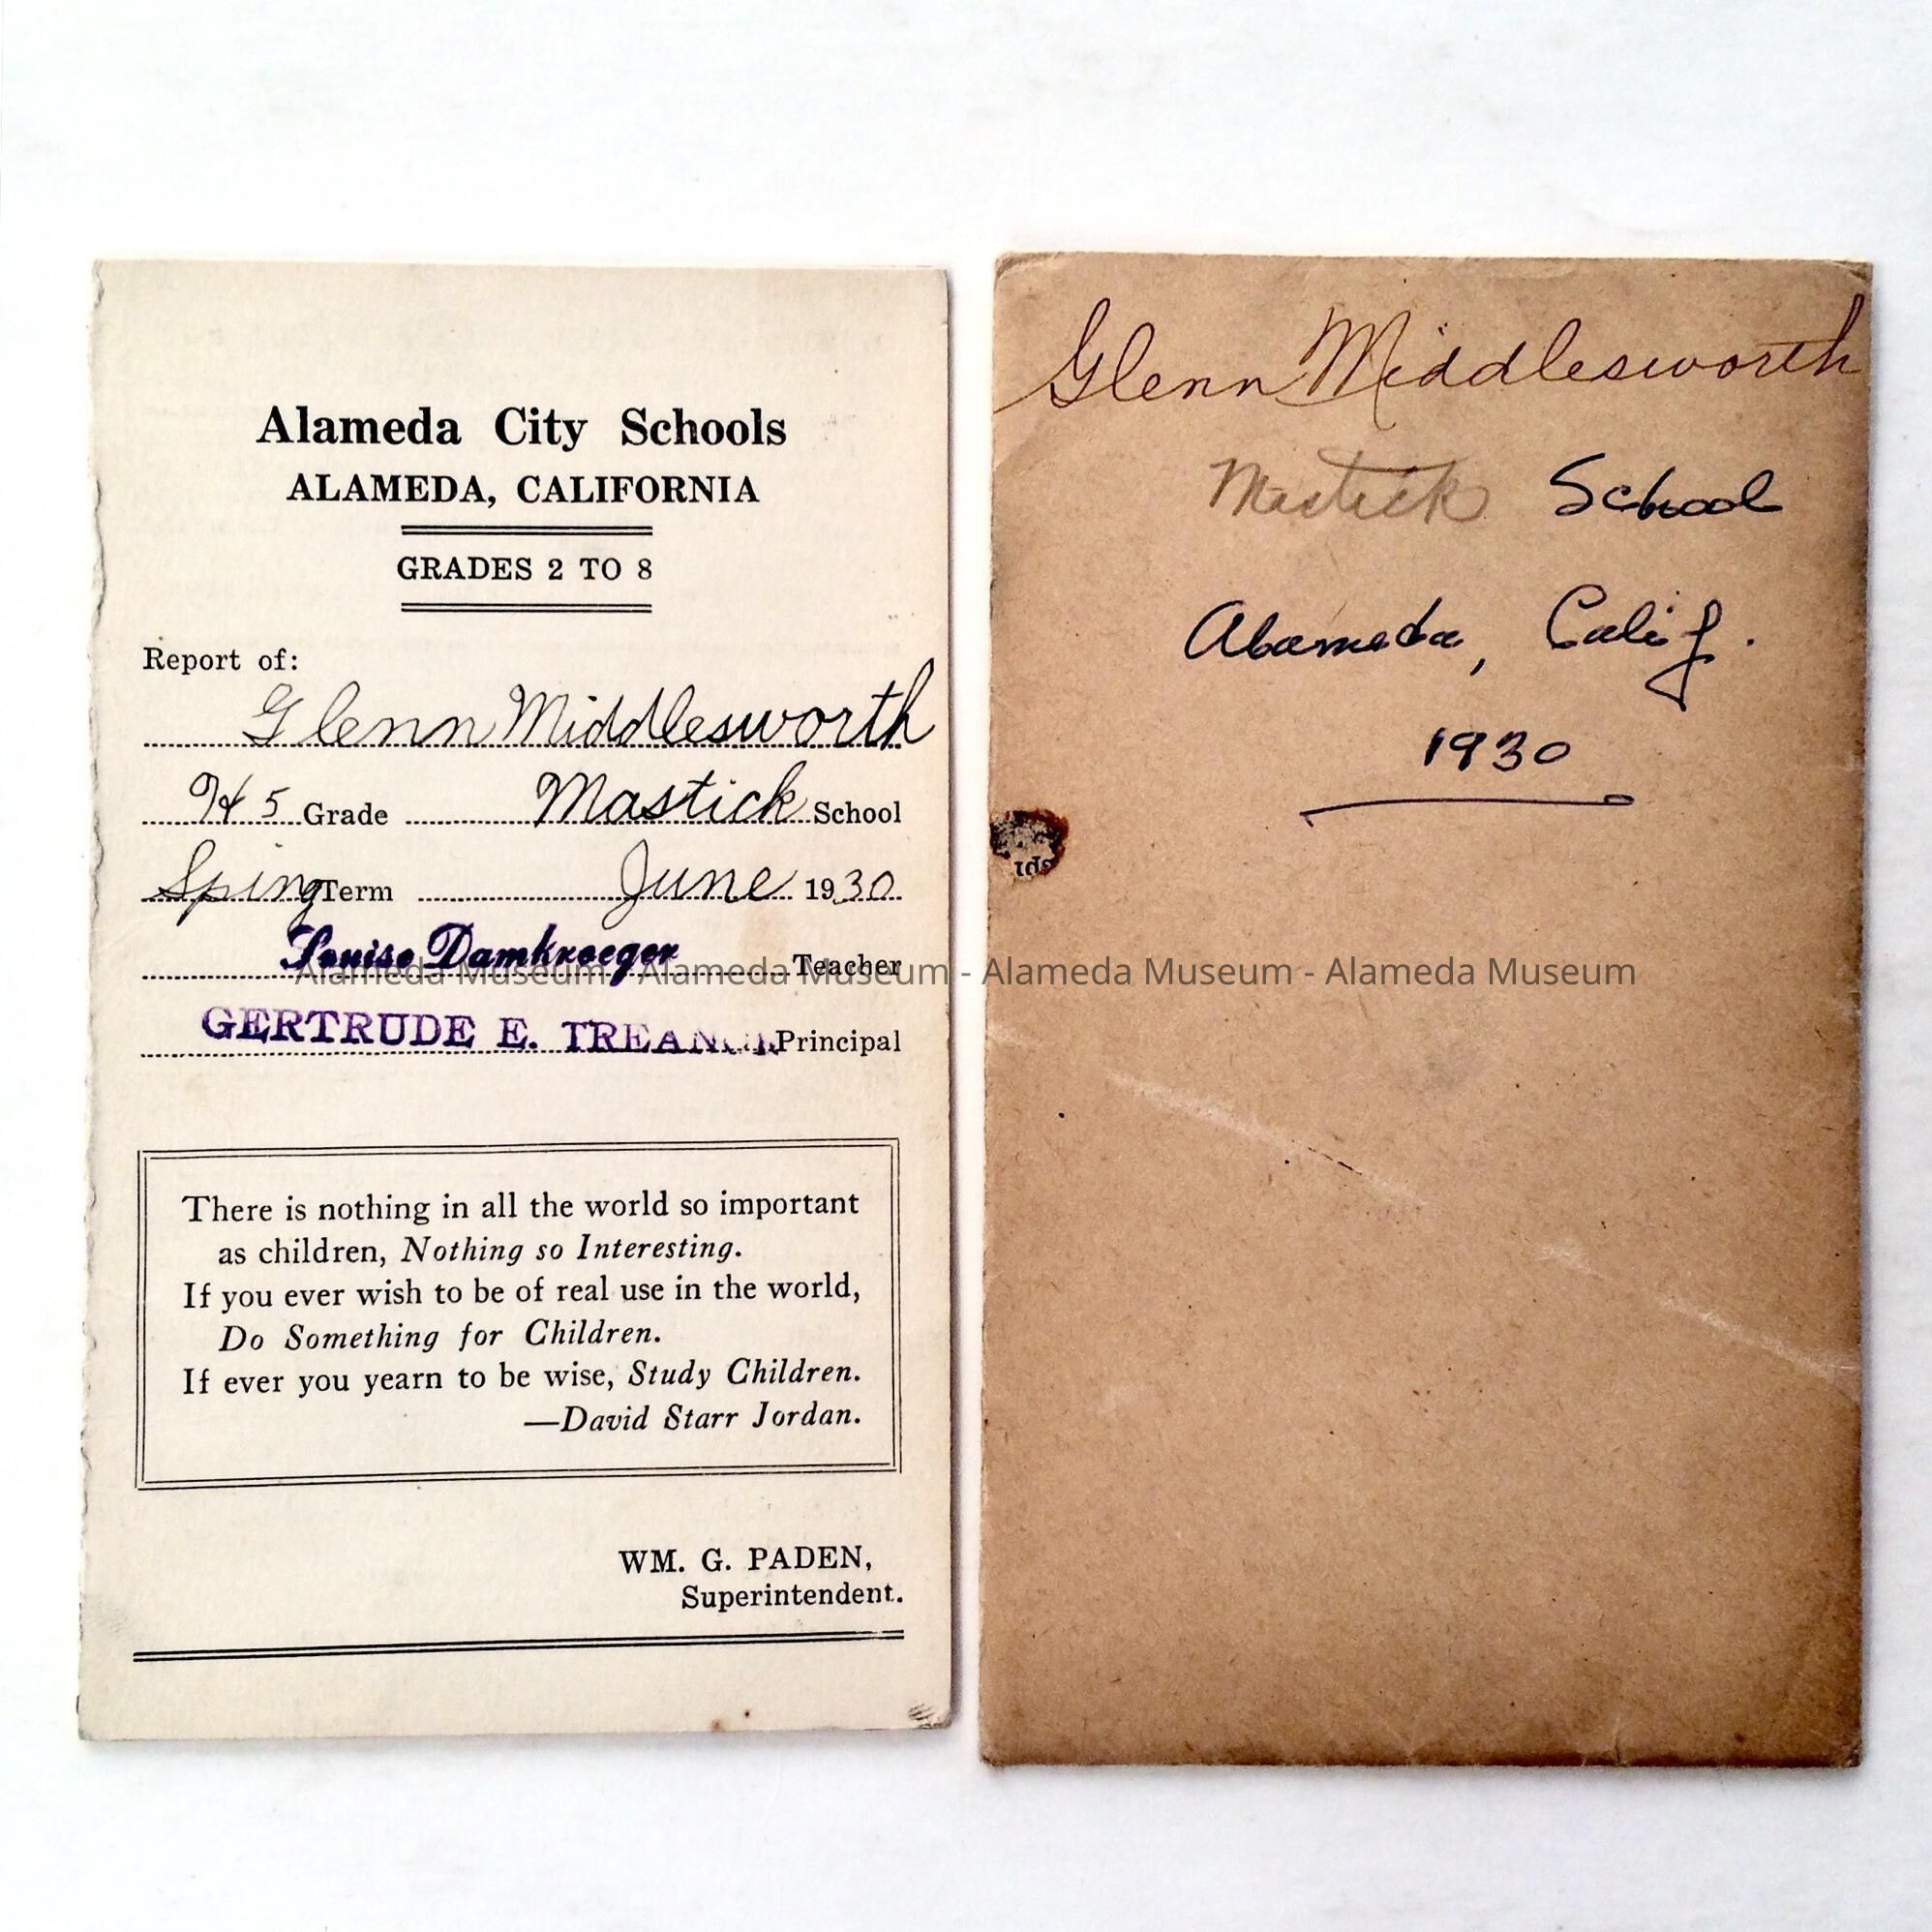 Alameda City Schools
ALAMEDA, CALIFORNIA
GRADES 2 TO 8
Report of:
Glenn Middlesworth
H 5 Grade Mastick School
Sping Term June 1930
Louise Damkroeger Teacher
GERTRUDE E. Principal
There is nothing in all the world so important
as children, Nothing so Interesting.
If you ever wish to be of real use in the world,
Do Something for Children.
If ever you yearn to be wise, Study Children.
—David Starr Jordan.
WM. G. PADEN,
Superintendent.
Glenn Middlesworth
Mastick School
Alameda, Calif.
1930
Alameda Museum - Alameda Museum - Alameda Museum - Alameda Museum